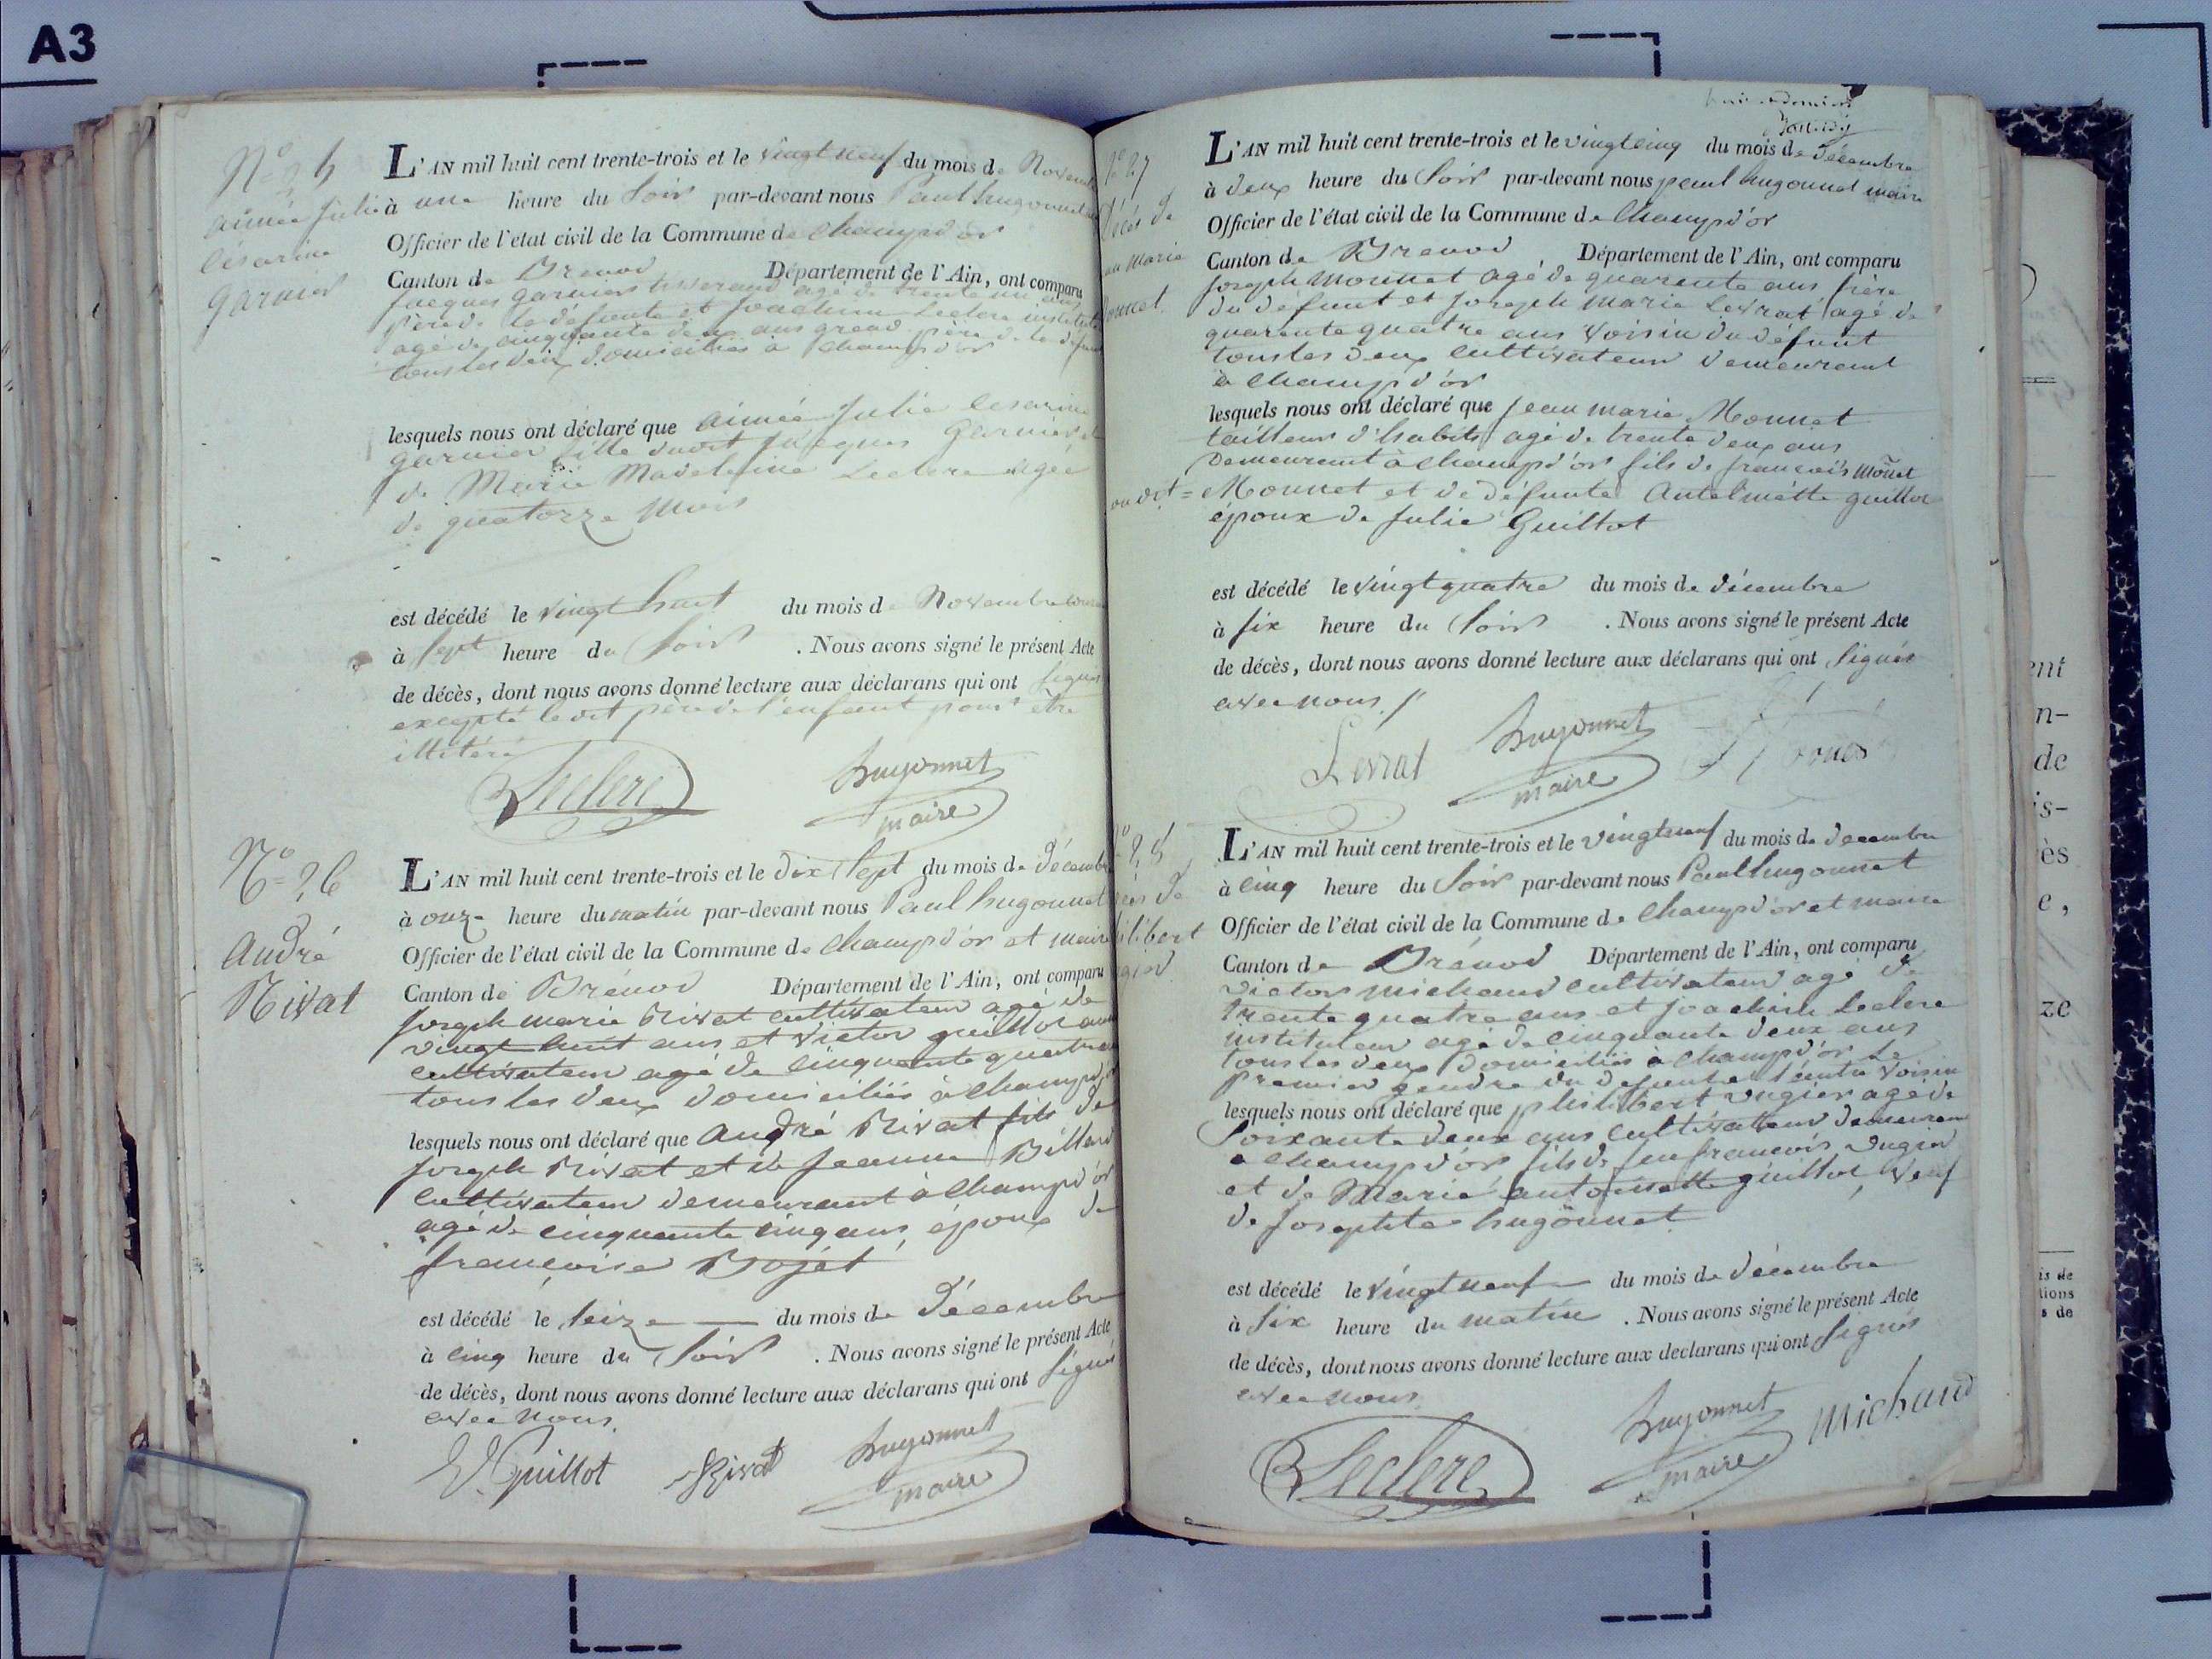 A3
N° 25
aimée Julie
Césarine
garnier
L'AN mil huit cent trente-trois et le vingt neuf du mois de Novembre
à une heure du Soir par-devant nous Paul hugonnet
Officier de l'état civil de la Commune de Champd'or
Canton de Brenod Département de l'Ain, ont comparu
Jacques garnier tisserand agé de trente un ans
père de la defunte et Joachim Leclerc instituteur
agé de cinquante deux ans grand père de la défunte
tous les deux domiciliés à Champd'or
lesquels nous ont déclaré que aimée Julie Cesarine
garnier fille dudit Jacques garnier &
de Marie Madeleine Leclerc agée
de quatorze Mois
est décédé le vingt huit du mois de Novembre
à Sept heure du Soir . Nous avons signé le présent Acte
de décès, dont nous avons donné lecture aux déclarans qui ont signés
excepté ledit père de l'enfant pour être
illitéré
Leclerc hugonnet
maire
N° 26
André
Rivat
L'AN mil huit cent trente-trois et le dix Sept du mois de Décembre
à onze heure du matin par-devant nous Paul hugonnet
Officier de l'état civil de la Commune de Champd'or et maire
Canton de Brénod Département de l'Ain, ont comparu
Joseph marie Rivat cultivateur agé de
vingt huit ans et Victor guillot aussi
cultivateur agé de cinquante quatre
tous les deux domiciliés à Champd'or
lesquels nous ont déclaré que André Rivat fils de
Joseph Rivat et de Jeanne Billard
Cultivateur demeurant à Champd'or
agé de cinquante cinq ans, époux de
françoise Bojat
est décédé le Seize du mois de Décembre
à cinq heure du Soir . Nous avons signé le présent Acte
de décès, dont nous avons donné lecture aux déclarans qui ont Signés
avec nous.
V. Guillot Rivat hugonnet
maire
N° 27
Décès de
Marie
Monnet
L'AN mil huit cent trente-trois et le vingt cinq du mois de Décembre
à deux heure du Soir par-devant nous paul hugonnet maire
Officier de l'état civil de la Commune de Champd'or
Canton de Brenod Département de l'Ain, ont comparu
Joseph Monnet agé de quarante ans frère
du défunt et Joseph marie Levrat agé de
quarante quatre ans voisin du défunt
tous les deux cultivateurs demeurant
à Champd'or
lesquels nous ont déclaré que Jean marie Monnet
tailleur d'habits agé de trente deux ans
demeurant à Champd'or fils de françois Monet
ou dit = Monnet et de défunte Antelmette guillot
époux de Julie Guillot
est décédé le vingt quatre du mois de décembre
à six heure du Soir . Nous avons signé le présent Acte
de décès, dont nous avons donné lecture aux déclarans qui ont Signés
avec nous //
Levrat hugonnet
maire
28
L'AN mil huit cent trente-trois et le vingt neuf du mois de décembre
à cinq heure du Soir par-devant nous Paul hugonnet
Officier de l'état civil de la Commune de Champd'or et maire
Canton de Brénod Département de l'Ain, ont comparu
Victor Michaud cultivateur agé de
trente quatre ans et Joachim Leclerc
instituteur agé de cinquante deux ans
tous les deux domiciliés à Champd'or le
premier gendre du défunt et l'autre voisin
lesquels nous ont déclaré que philibert Vugier agé de
Soixante deux ans cultivateur demeurant
à Champd'or fils de feu françois Vugier
et de Marie antoinette guillot, veuf
de Josephte hugonnet
est décédé le vingt neuf du mois de décembre
à Six heure du matin . Nous avons signé le présent Acte
de décès, dont nous avons donné lecture aux declarans qui ont Signés
avec nous.
Leclerc hugonnet Michaud
maire